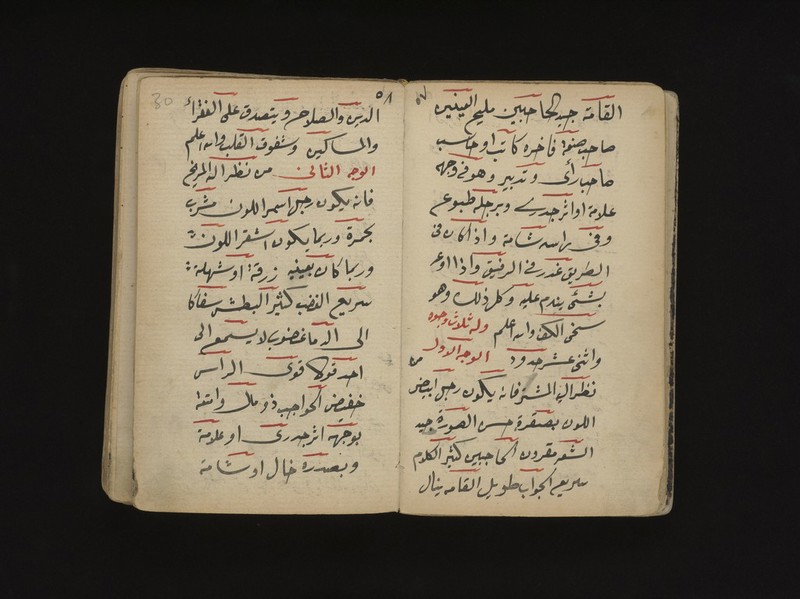 ٥٧
القامة جيد الحاجبين مليح العينين
صاحب صنعة فاخره كاتب او حاسب
صاحب رأى وتدبير وهو فى وجهه
علامة او اثر جدرى وبرجله طبوع
وفى راسه شامة واذا كان فى
الطريق غدر فى الرفيق واذا اوعد
بشئ يندم عليه وكل ذلك وهو
سخى الكف والله اعلم وله ثلاث وجوه
واثنى عشر حدود الوجه الاول من
نظر الى المشترى فانه يكون رجل ابيض
اللون بصفرة حسن الصورة جيد
الشعر مقرون الحاجبين كثير الكلام
سريع الجواب طويل القامه ينال
٥٨
30
الدين والصلاح ويتصدق على الفقراء
والمساكين وشفوق القلب والله اعلم
الوجه الثانى من نظر الى المريخ
فانه يكون رجل اسمر اللون مشرب
بحمرة وربما يكون اشقر اللون
وربما كان بعينيه زرقة او شهلة
سريع الغضب كثير البطش سفاكا
الى الدما غضوب لا يسمع الى
احد قولا قوى الراس
خفيض الحواجب ذو مال وامتعة
بوجهه اثر جدرى او علامة
وبصدره خال او شامة